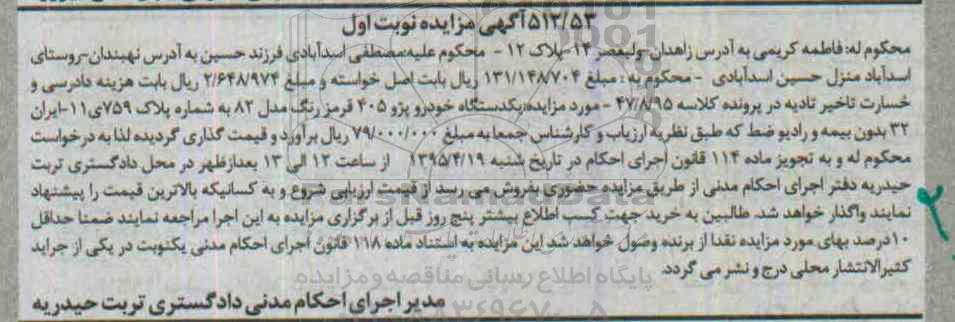 ۵۱۲/۵۳ آگهی مزایده نوبت اول
محکوم له: فاطمه کریمی به آدرس زاهدان-ولیعصر ۱۴-پلاک ۱۲ - محکوم علیه:مصطفی اسدآبادی فرزند حسین به آدرس نهبندان-روستای
اسدآباد منزل حسین اسدآبادی - محکوم به : مبلغ ۱۳۱/۱۴۸/۷۰۴ ریال بابت اصل خواسته و مبلغ ۲/۶۴۸/۹۷۴ ریال بابت هزینه دادرسی و
خسارت تاخیر تادیه در پرونده کلاسه ۴۷/۸/۹۵ - مورد مزایده:یکدستگاه خودرو پژو ۴۰۵ قرمز رنگ مدل ۸۲ به شماره پلاک ۷۵۹ی۱۱-ایران
۳۲ بدون بیمه و رادیو ضبط که طبق نظریه ارزیاب و کارشناس جمعا به مبلغ ۷۹/۰۰۰/۰۰۰ ریال برآورد و قیمت گذاری گردیده لذا به درخواست
محکوم له و به تجویز ماده ۱۱۴ قانون اجرای احکام در تاریخ شنبه ۱۳۹۵/۴/۱۹ از ساعت ۱۲ الی ۱۳ بعدازظهر در محل دادگستری تربت
حیدریه دفتر اجرای احکام مدنی از طریق مزایده حضوری بفروش می رسد از قیمت ارزیابی شروع و به کسانیکه بالاترین قیمت را پیشنهاد
نمایند واگذار خواهد شد. طالبین به خرید جهت کسب اطلاع بیشتر پنج روز قبل از برگزاری مزایده به این اجرا مراجعه نمایند ضمنا حداقل
۱۰درصد بهای مورد مزایده نقدا از برنده وصول خواهد شد این مزایده به استناد ماده ۱۱۸ قانون اجرای احکام مدنی یکنوبت در یکی از جراید
کثیرالانتشار محلی درج و نشر می گردد.
پایگاه اطلاع رسانی مناقصه و مزایده
مدیر اجرای احکام مدنی دادگستری تربت حیدریه